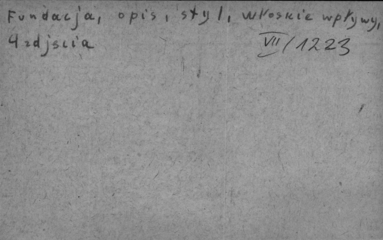 Fundacja, opis, styl, włoskie wpływy,
4 zdjęcia VII/1223